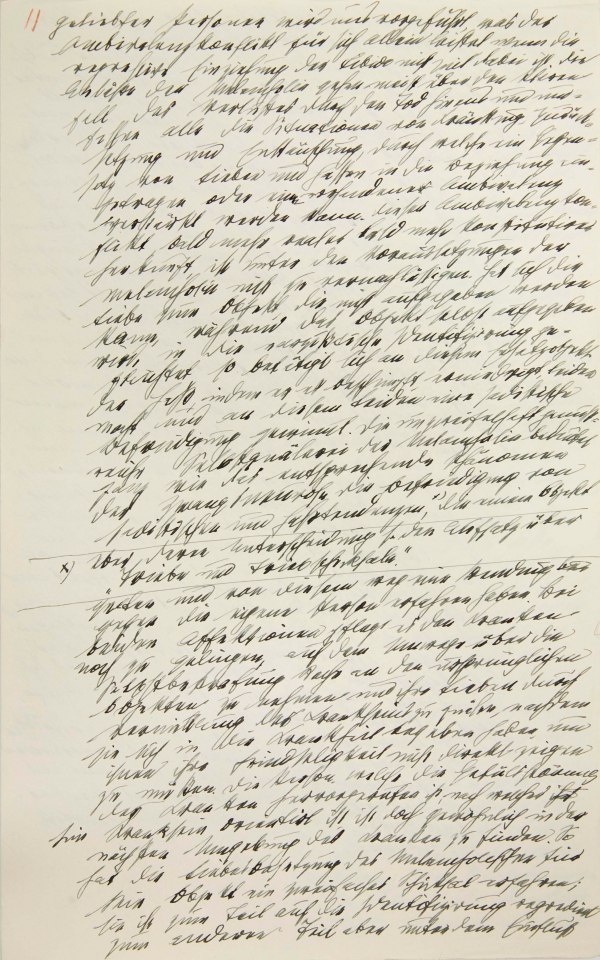 11
geliebter Personen wird uns vorgeführt was der
Ambivalenzkonflikt für sich allein leistet wenn die
regressive Einziehung der Libido nicht mit dabei ist. Die
Anlässe der Melancholie gehen meist über den klaren
Fall des Verlustes durch den Tod hinaus und um-
fassen alle die Situationen von Kränkung Zurück-
setzung und Enttäuschung durch welche ein Gegen-
satz von Lieben und Hassen in die Beziehung ein-
getragen oder eine vorhandene Ambivalenz
verstärkt werden kann. Dieser Ambivalenzkon-
flikt, bald mehr realer bald mehr konstitutiver
Herkunft ist unter den Voraussetzungen der
Melancholie nicht zu vernachlässigen. Hat sich die
Liebe zum Objekt die nicht aufgegeben werden
kann, während das Objekt selbst aufgegeben
wird, in die narzißtische Identifizierung ge-
flüchtet so betätigt sich an diesem Ersatzobjekt
der Haß indem er es beschimpft erniedrigt, leiden
macht und an diesem Leiden eine sadistische
Befriedigung gewinnt. Die unzweifelhaft genuß-
reiche Selbstquälerei der Melancholie bedeutet
ganz wie das entsprechende Phänomen
der Zwangsneurose die Befriedigung von
sadistischen und Haßtendenzen, x) die einem Objekt
x) Über deren Unterscheidung s. den Aufsatz über
„Triebe und Triebschicksale."
gelten und von diesem weg eine Wendung
gegen die eigene Person erfahren haben Bei
beiden Affektionen pflegt es den Kranken
noch zu gelingen, auf dem Umwege über die
Selbstbestrafung Rache an den ursprünglichen
Objekten zu nehmen und ihre Lieben durch
Vermittlung des Krankseins zu quälen nachdem
sie sich in die Krankheit begeben haben um
ihnen ihre Feindseligkeit nicht direkt zeigen
zu müssen. Die Person welche die Gefühlsstörung
des Kranken hervorgerufen nach welcher
sein Kranksein orientirt ist ist doch gewöhnlich in der
nächsten Umgebung des Kranken zu finden. So
hat die Liebesbesetzung des Melancholischen für
sein Objekt ein zweifaches Schicksal erfahren;
sie ist zum Teil auf die Identifizierung regredirt
zum anderen Teil aber unter dem Einfluß